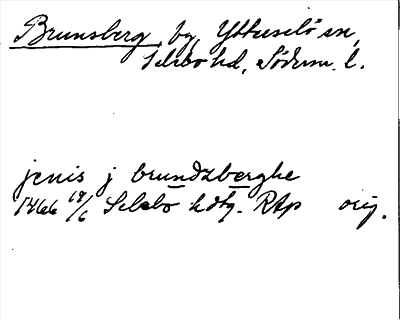 Brunsberg, by, Ytterselö sn,
Selebo hd, Söderm. l.
jenis j brundzberghe
1466 19/6 Selebo hdtg. RAp orig.